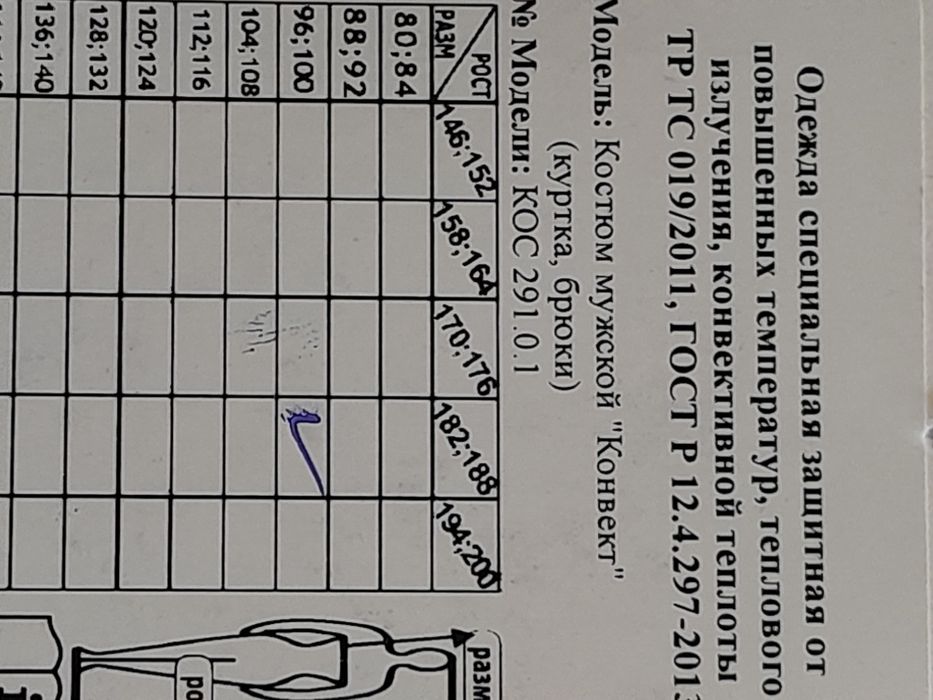 Одежда специальная защитная от
повышенных температур, теплового
излучения, конвективной теплоты
ТР ТС 019/2011, ГОСТ Р 12.4.297-2013
Модель: Костюм мужской "Конвект"
(куртка, брюки)
№ Модели: КОС 291.0.1
РОСТ
РАЗМ 146;152 158;164 170;176 182;188 194;200
80;84
88;92
96;100
104;108
112;116
120;124
128;132
136;140
разм
ро